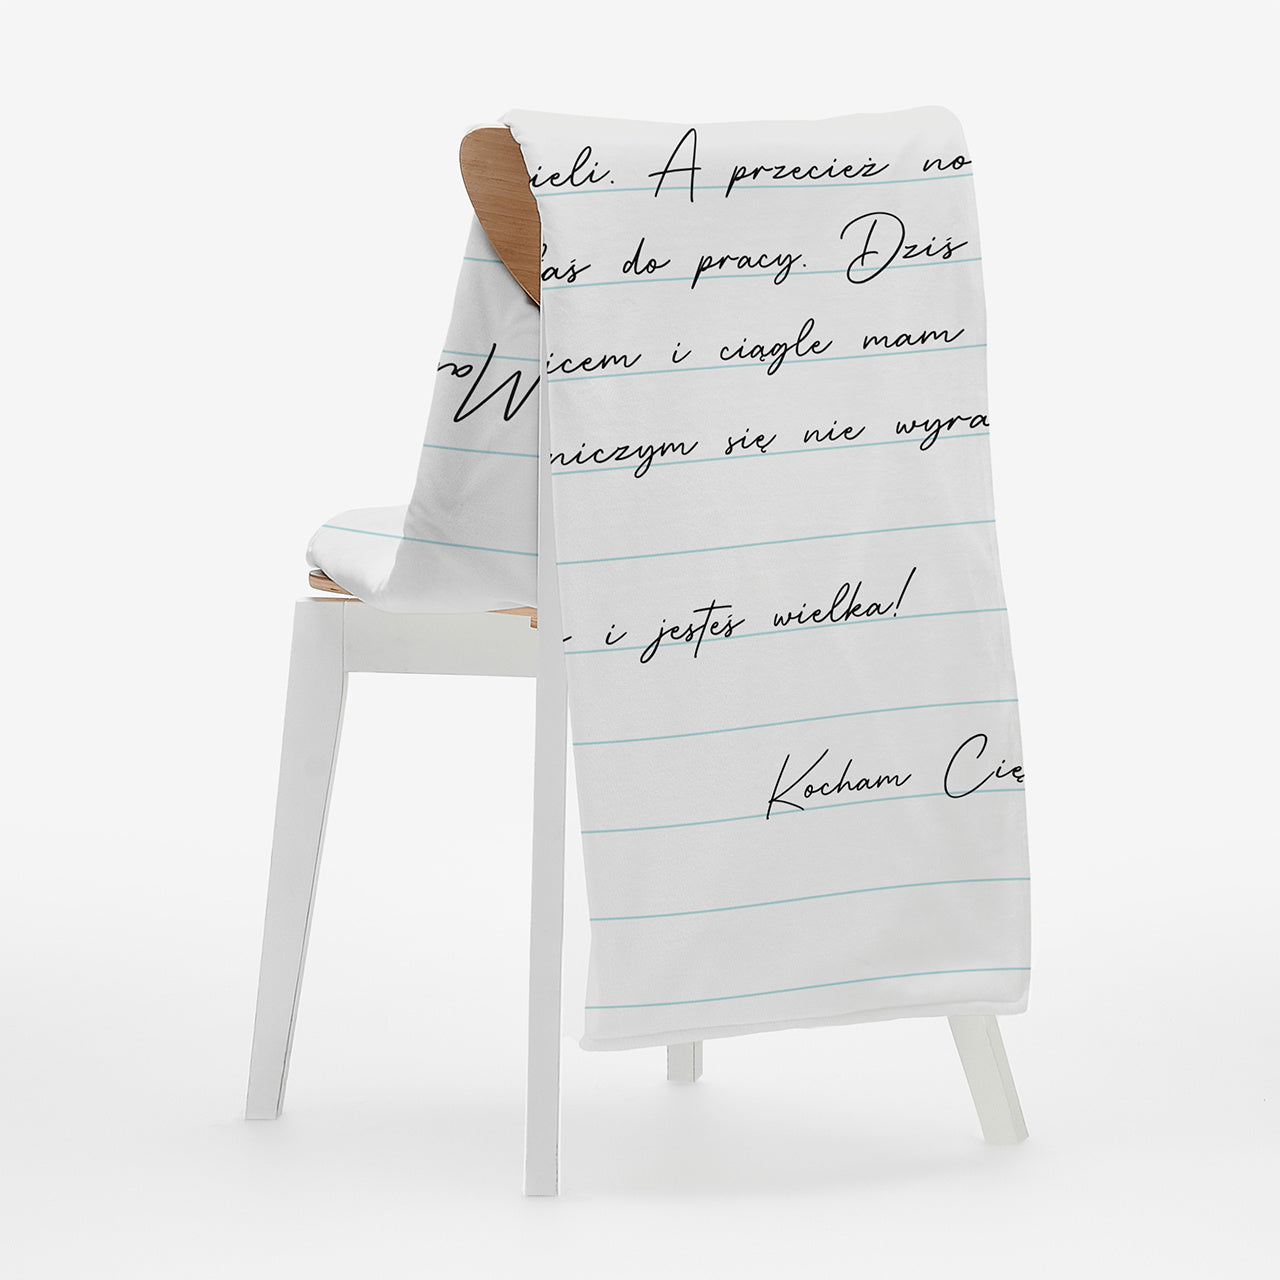 ieli. A przecież no
łaś do pracy. Dziś
icem i ciągle mam
niczym się nie wyra
i jesteś wielka!
Kocham Cię
Ma